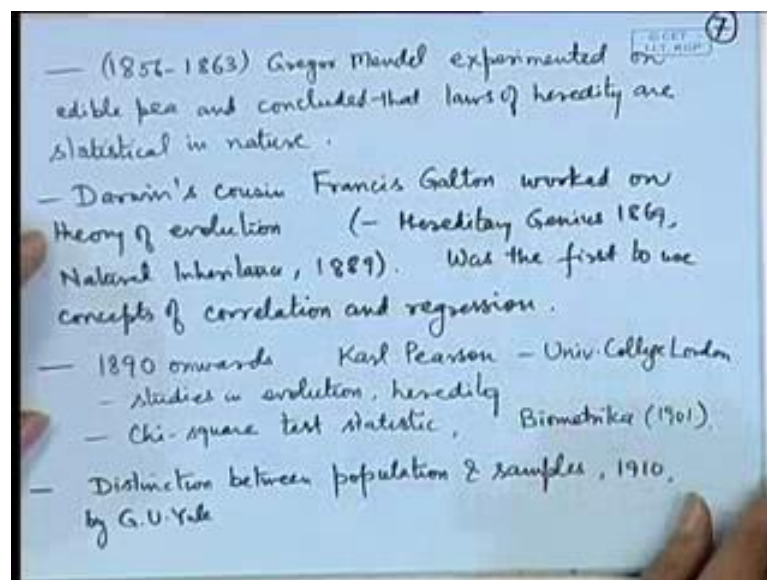 7
— (1856-1863) Gregor Mendel experimented on
edible pea and concluded that laws of heredity are
statistical in nature.
— Darwin's cousin Francis Galton worked on
theory of evolution (- Hereditary Genius 1869,
Natural Inheritance, 1889). Was the first to use
concepts of correlation and regression.
— 1890 onwards Karl Pearson - Univ. College London
- studies in evolution, heredity
- Chi-square test statistic, Biometrika (1901).
— Distinction between population & samples, 1910,
by G.U. Yule